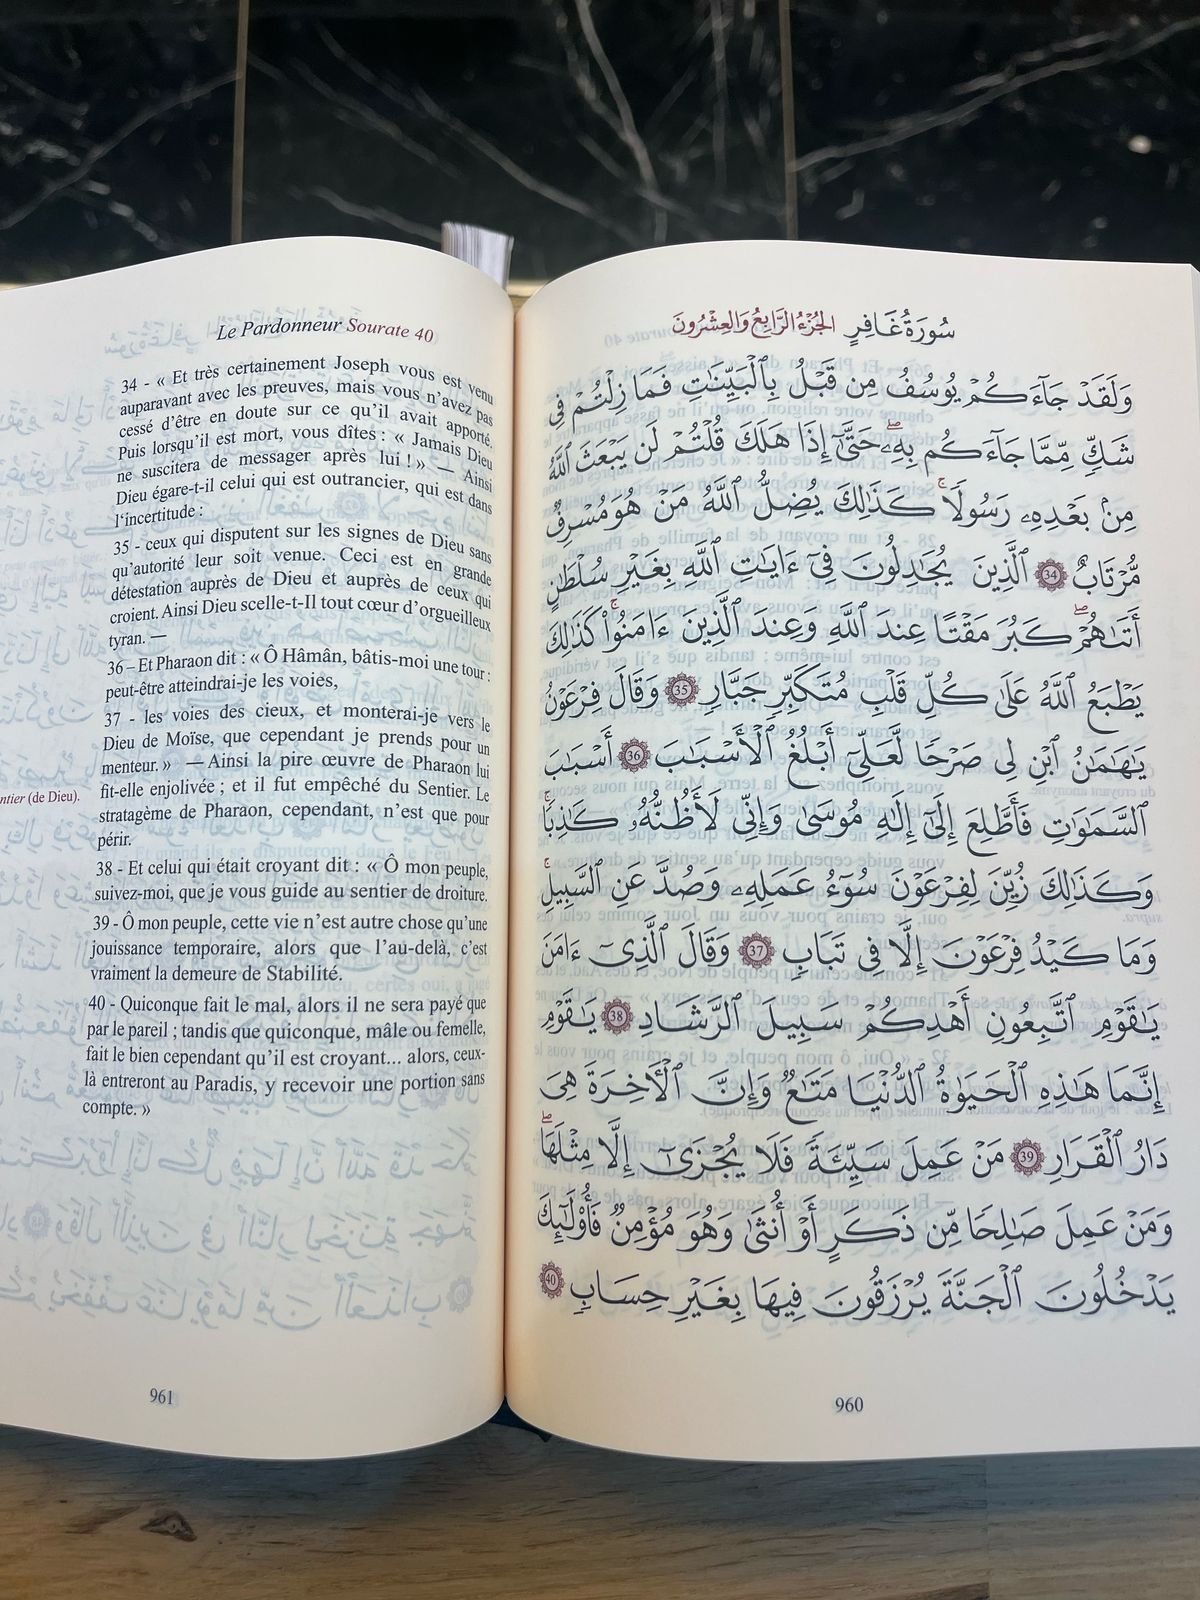 سُورَةُ غَافِرٍ الجُزْءُ الرَّابِعُ وَالعِشْرُونَ
وَلَقَدْ جَآءَكُمْ يُوسُفُ مِن قَبْلُ بِٱلْبَيِّنَٰتِ فَمَا زِلْتُمْ فِى
شَكٍّ مِّمَّا جَآءَكُم بِهِۦۖ حَتَّىٰٓ إِذَا هَلَكَ قُلْتُمْ لَن يَبْعَثَ ٱللَّهُ
مِنۢ بَعْدِهِۦ رَسُولًاۚ كَذَٰلِكَ يُضِلُّ ٱللَّهُ مَنْ هُوَ مُسْرِفٌ
مُّرْتَابٌ 34 ٱلَّذِينَ يُجَٰدِلُونَ فِىٓ ءَايَٰتِ ٱللَّهِ بِغَيْرِ سُلْطَٰنٍ
أَتَىٰهُمْۖ كَبُرَ مَقْتًا عِندَ ٱللَّهِ وَعِندَ ٱلَّذِينَ ءَامَنُوا۟ۚ كَذَٰلِكَ
يَطْبَعُ ٱللَّهُ عَلَىٰ كُلِّ قَلْبِ مُتَكَبِّرٍ جَبَّارٍ 35 وَقَالَ فِرْعَوْنُ
يَٰهَٰمَٰنُ ٱبْنِ لِى صَرْحًا لَّعَلِّىٓ أَبْلُغُ ٱلْأَسْبَٰبَ 36 أَسْبَٰبَ
ٱلسَّمَٰوَٰتِ فَأَطَّلِعَ إِلَىٰٓ إِلَٰهِ مُوسَىٰ وَإِنِّى لَأَظُنُّهُۥ كَٰذِبًاۚ
وَكَذَٰلِكَ زُيِّنَ لِفِرْعَوْنَ سُوٓءُ عَمَلِهِۦ وَصُدَّ عَنِ ٱلسَّبِيلِۚ
وَمَا كَيْدُ فِرْعَوْنَ إِلَّا فِى تَبَابٍ 37 وَقَالَ ٱلَّذِىٓ ءَامَنَ
يَٰقَوْمِ ٱتَّبِعُونِ أَهْدِكُمْ سَبِيلَ ٱلرَّشَادِ 38 يَٰقَوْمِ
إِنَّمَا هَٰذِهِ ٱلْحَيَوٰةُ ٱلدُّنْيَا مَتَٰعٌ وَإِنَّ ٱلْءَاخِرَةَ هِىَ
دَارُ ٱلْقَرَارِ 39 مَنْ عَمِلَ سَيِّئَةً فَلَا يُجْزَىٰٓ إِلَّا مِثْلَهَاۖ
وَمَنْ عَمِلَ صَٰلِحًا مِّن ذَكَرٍ أَوْ أُنثَىٰ وَهُوَ مُؤْمِنٌ فَأُو۟لَٰٓئِكَ
يَدْخُلُونَ ٱلْجَنَّةَ يُرْزَقُونَ فِيهَا بِغَيْرِ حِسَابٍ 40
960
Le Pardonneur Sourate 40
34 - « Et très certainement Joseph vous est venu
auparavant avec les preuves, mais vous n’avez pas
cessé d’être en doute sur ce qu’il avait apporté.
Puis lorsqu’il est mort, vous dîtes : « Jamais Dieu
ne suscitera de messager après lui ! » — Ainsi
Dieu égare-t-il celui qui est outrancier, qui est dans
l‘incertitude :
35 - ceux qui disputent sur les signes de Dieu sans
qu’autorité leur soit venue. Ceci est en grande
détestation auprès de Dieu et auprès de ceux qui
croient. Ainsi Dieu scelle-t-Il tout cœur d’orgueilleux
tyran. —
36 – Et Pharaon dit : « Ô Hâmân, bâtis-moi une tour :
peut-être atteindrai-je les voies,
37 - les voies des cieux, et monterai-je vers le
Dieu de Moïse, que cependant je prends pour un
menteur. » — Ainsi la pire œuvre de Pharaon lui
fit-elle enjolivée ; et il fut empêché du Sentier. Le
stratagème de Pharaon, cependant, n’est que pour
périr.
38 - Et celui qui était croyant dit : « Ô mon peuple,
suivez-moi, que je vous guide au sentier de droiture.
39 - Ô mon peuple, cette vie n’est autre chose qu’une
jouissance temporaire, alors que l’au-delà, c’est
vraiment la demeure de Stabilité.
40 - Quiconque fait le mal, alors il ne sera payé que
par le pareil ; tandis que quiconque, mâle ou femelle,
fait le bien cependant qu’il est croyant... alors, ceux-
là entreront au Paradis, y recevoir une portion sans
compte. »
ntier (de Dieu).
961